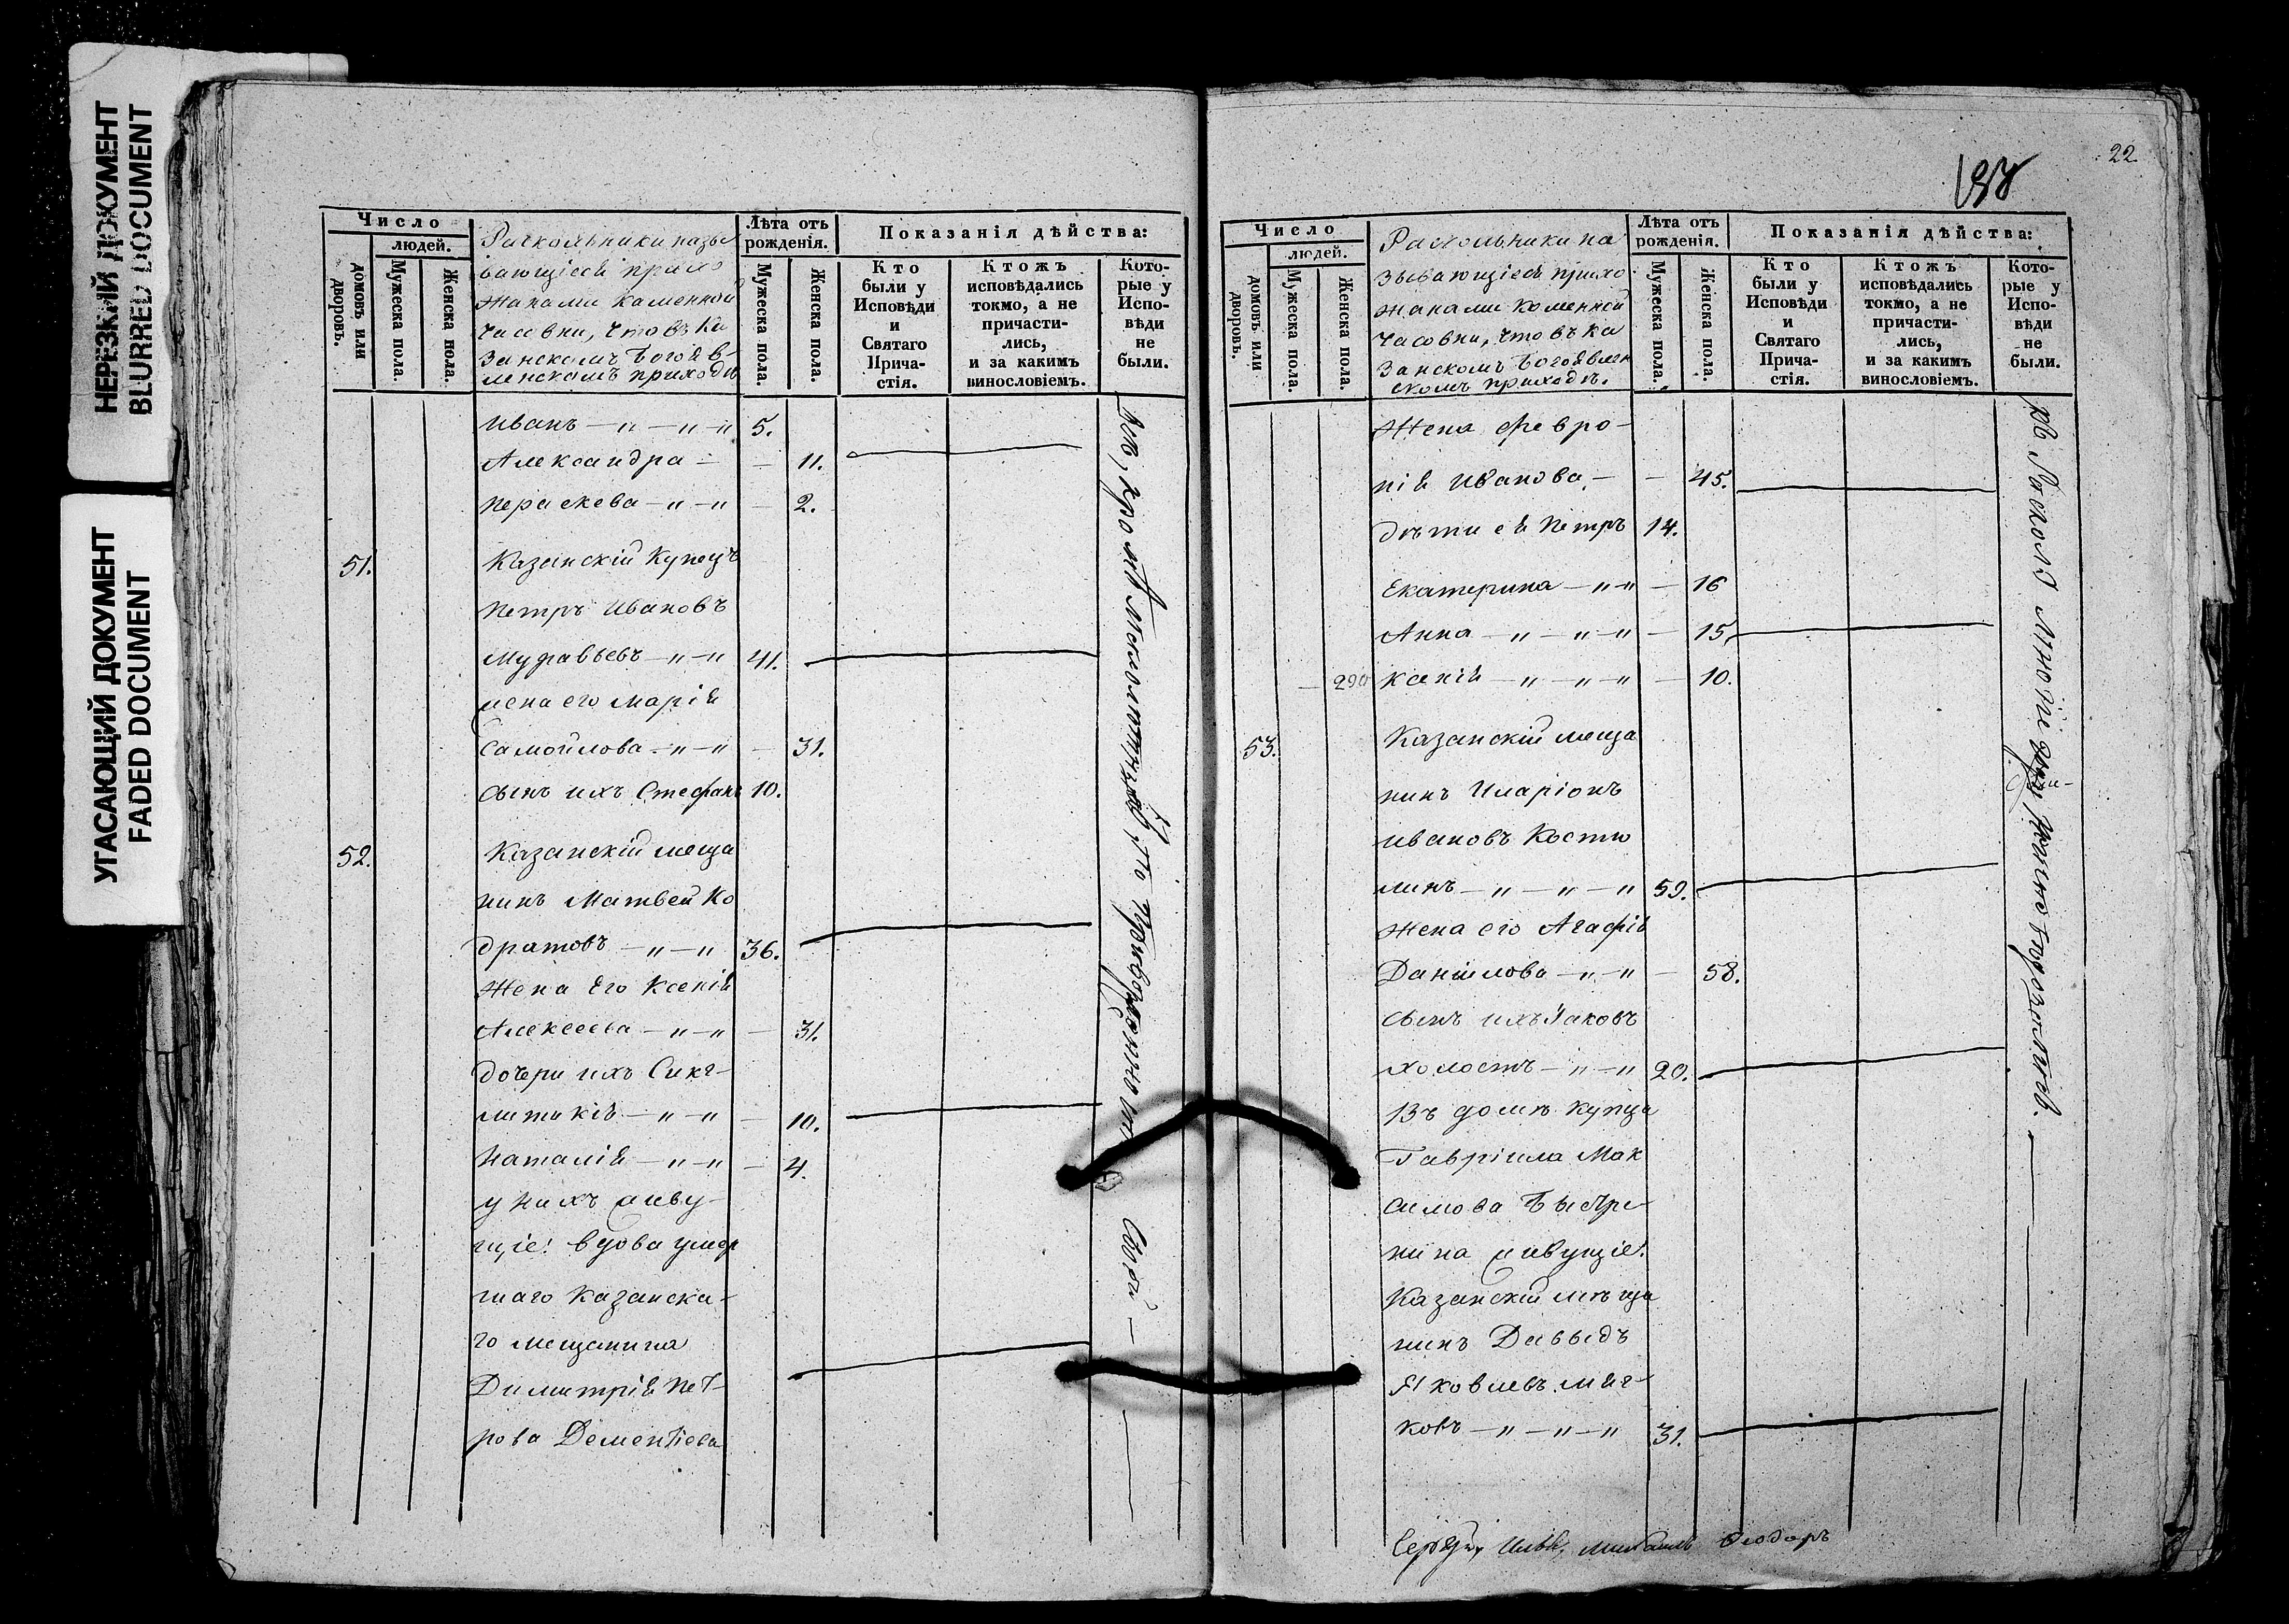 НЕРЕЗКИЙ ДОКУМЕНТ
BLURRED DOCUMENT
УГАСАЮЩИЙ ДОКУМЕНТ
FADED DOCUMENT
Число
людей.
домовъ или дворовъ.
Мужеска пола.
Женска пола.
Раскольники назы
вающіеся прихо
жанами каменной
часовни, что въ Ка
занскомъ Богояв-
ленскомъ приходѣ
Лѣта отъ рожденія.
Мужеска пола.
Женска пола.
Показанія дѣйства:
Кто были у Исповѣди и Святаго Прича- стія.
Ктожъ исповѣдались токмо, а не причасти- лись, и за какимъ винословіемъ.
Кото- рые у Испо- вѣди не были.
Иванъ — „ — „ — „ 5.
Александра — — 11.
Параскева — „ — „ — 2.
51. Казанскій Купецъ
Петръ Ивановъ
Муравьевъ — „ — „ 41.
жена его Марія
Самойлова — „ — „ — 31.
сынъ ихъ Стефанъ 10.
52. Казанскій меща
нинъ Матвей Ко
дратовъ — „ — „ 36.
Жена Его Ксенія
Алексеева — „ — „ — 31.
дочери ихъ Сикг-
литикія — „ — „ — 10.
Наталія — „ — „ — 4.
у нихъ живу-
щіе: вдова умер
шаго Казанска-
го мещанина
Димитрія Пет-
рова Дементіева
22
Число
людей.
домовъ или дворовъ.
Мужеска пола.
Женска пола.
Раскольники на
зывающіеся прихо
жанами Каменной
часовни, что въ Ка
занскомъ Богоявлен
скомъ приходѣ.
Лѣта отъ рожденія.
Мужеска пола.
Женска пола.
Показанія дѣйства:
Кто были у Исповѣди и Святаго Прича- стія.
Ктожъ исповѣдались токмо, а не причасти- лись, и за какимъ винословіемъ.
Кото- рые у Испо- вѣди не были.
Жена Февро-
нія Иванова — — 45.
дѣти ея Петръ 14.
Екатерина — „ — „ — 16
Анна — „ — „ — „ — 15,
— 290 Ксенія — „ — „ — „ — 10.
53. Казанскій меща
нинъ Иларіонъ
Ивановъ Костю
линъ — „ — „ — „ 59.
Жена его Агафія
Даніилова — „ — „ — 58.
сынъ ихъ Іаковъ
холостъ — „ — „ 20.
Въ домѣ купца
Гавріила Мак
симова Быстре-
нина живущіе:
Казанскій мѣща
нинъ Давыдъ
Яковлевъ Мяг-
ковъ — „ — „ — „ 31.
Сергѣй, Илья, Михаилъ Ѳеодоръ